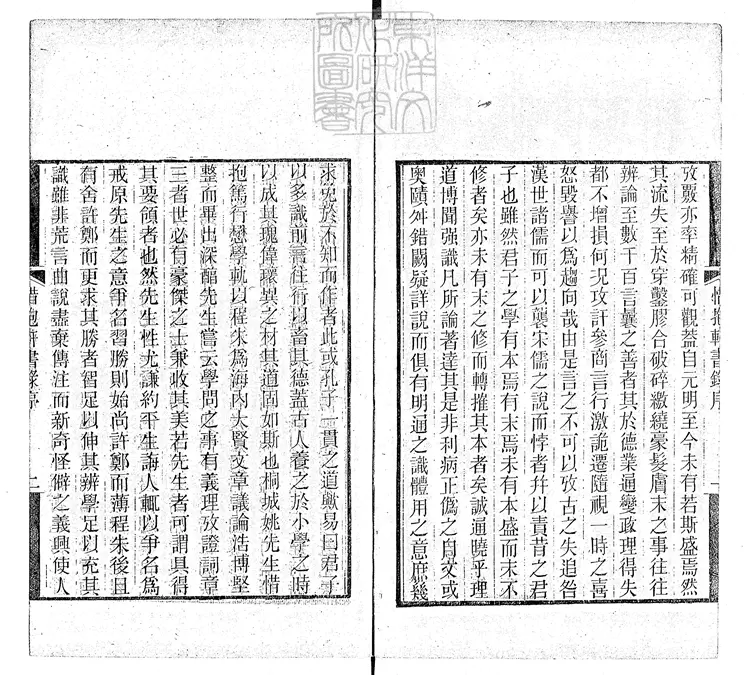 攷覈亦率精確可觀蓋自元明至今未有若斯盛焉然
其流失至於穿鑿膠合破碎繳繞豪髮膚末之事往往
辨論至數千百言曩之善者其於德業通變政理得失
都不增損何況攻訐參商言行激詭遷隨視一時之喜
怒毀譽以爲趨向哉由是言之不可以攷古之失追咎
漢世諸儒而可以襲宋儒之說而悖者幷以責昔之君
子也雖然君子之學有本焉有末焉未有本盛而末不
修者矣亦未有末之修而轉摧其本者矣誠通曉乎理
道博聞强識凡所論著達其是非利病正僞之自文或
奧賾舛錯闕疑詳說而俱有明通之識體用之意庶幾
惜抱軒書錄序
一
求免於不知而作者此或孔子一貫之道歟易曰君子
以多識前言往行以畜其德蓋古人養之於小學之時
以成其瑰偉瓌異之材其道固如斯也桐城姚先生惜
抱篤行懋學軌以程朱爲海內大賢文章議論浩博堅
整而畢出深醇先生嘗云學問之事有義理攷證詞章
三者世必有豪傑之士兼收其美若先生者可謂具得
其要領者也然先生性尤謙約平生誨人輒以爭名爲
戒原先生之意爭名習勝則始尚許鄭而薄程朱後且
有舍許鄭而更求其勝者智足以伸其辨學足以充其
識雖非荒言曲說盡棄傳注而新奇怪僻之義興使人
惜抱軒書錄序
二
東洋文化研究所圖書